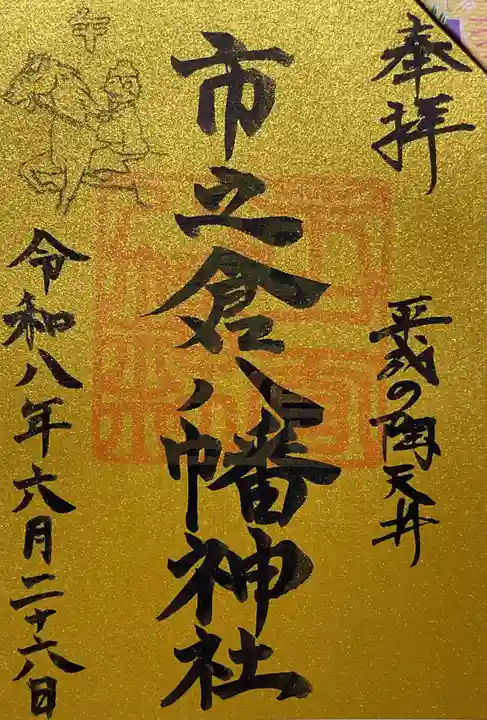 奉拝
平成の陶天井
市之倉八幡神社
令和八年六月二十六日